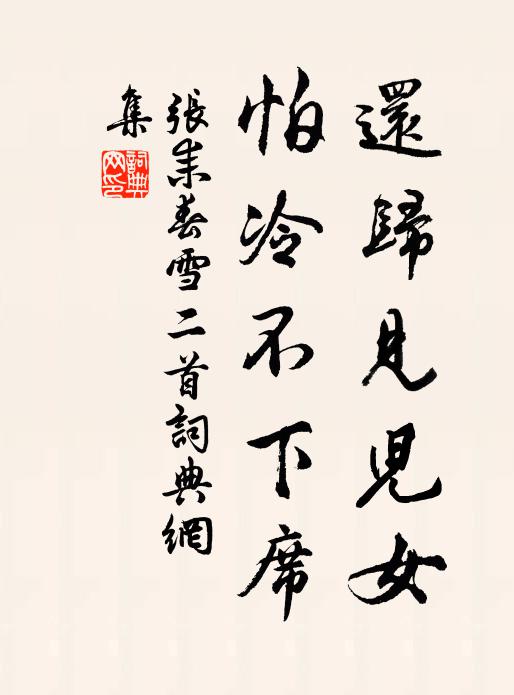 還歸見児女
怕冷不下席
張耒春雪二首詞典網
集
詞典
网印